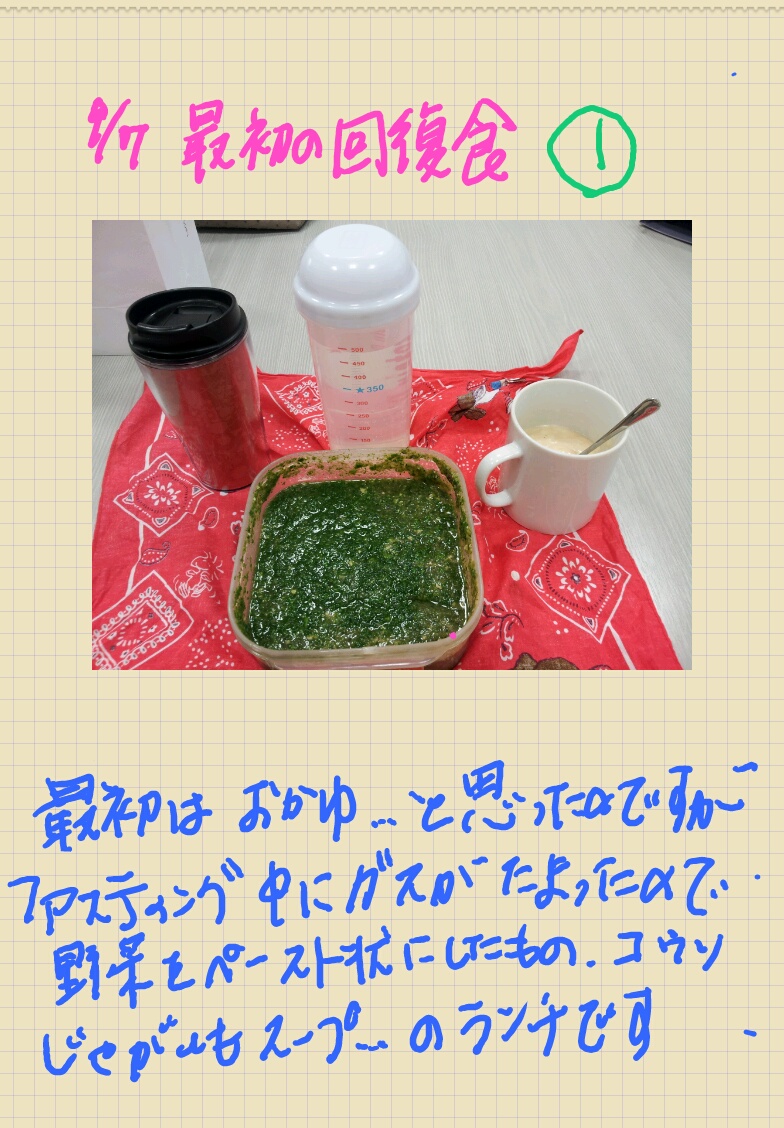 9/7 最初の回復食 ①
500
450
400
★350
300
250
200
150
最初は おかゆ…と思ったのですが
ファスティング中にガスがたまったので
野菜をペースト状にしたもの、コウソ
じゃがいもスープ…のランチです